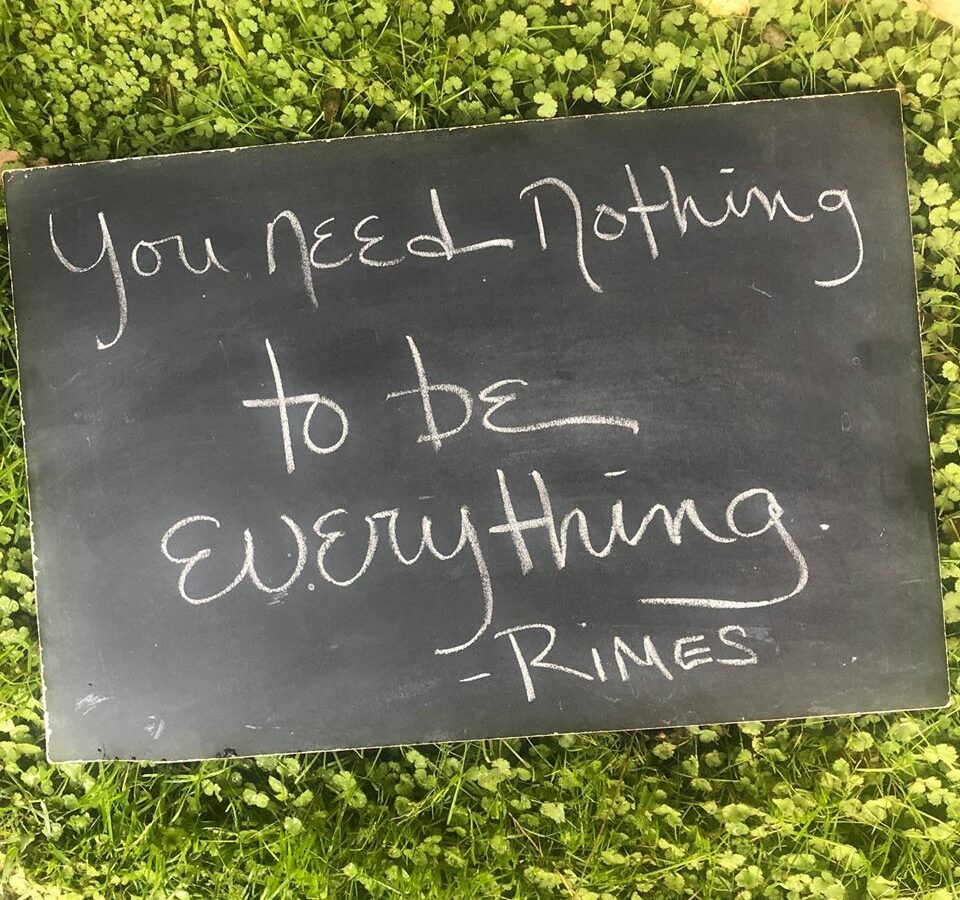 You need nothing
to be
everything.
- RiMES